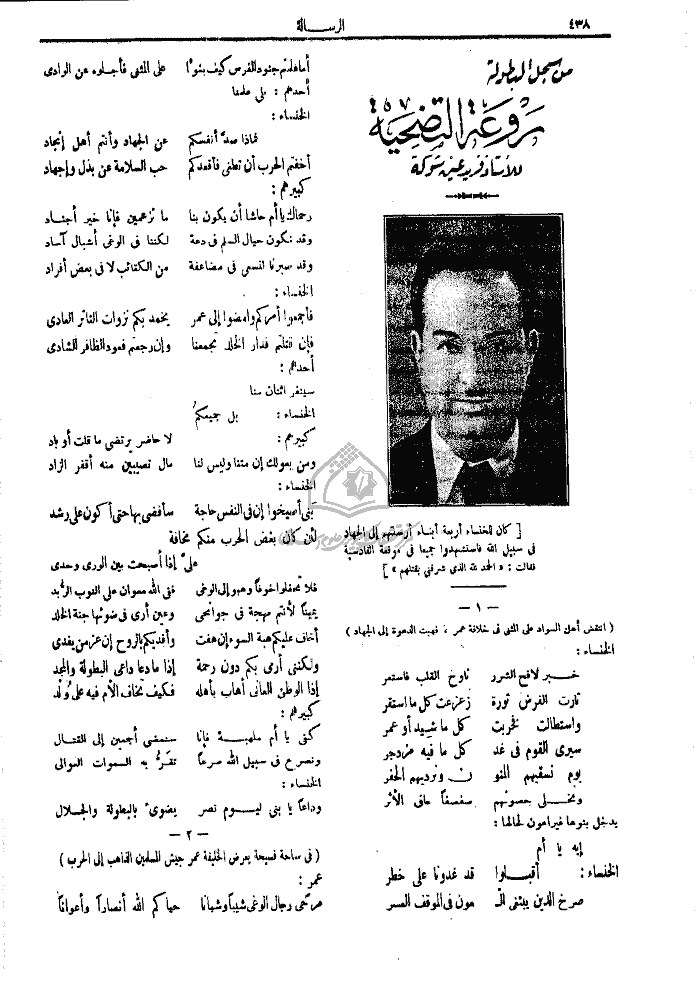 ٤٣٨
الرسالة
من سجل البطولة
روعة التضحية
للأستاذ فريد عين شوكة
[ كان للخنساء أربعة أبناء أرسلتهم إلى الجهاد
فى سبيل الله فاستشهدوا جميعا فى موقعة القادسية
فقالت : « الحمد لله الذى شرفنى بقتلهم » ]
— ١ —
( انتقض أهل السواد على المثنى فى خلافة عمر ، فهبت الدعوة إلى الجهاد )
الخنساء :
خبر لافح الشرر ناوح القلب فاستعر
ثارت الفرض ثورة زعزعت كل ما استقر
واستطالت فخربت كل ما شيد أو عمر
سيرى القوم فى غد كل ما فيه مزدجر
يوم نسقيهم المنو ن ونرديهم الحفر
ونخلى حصونهم صفصفاً عافى الأثر
يدخل بنوها فيرامون لحالها :
إيه يا أم
الخنساء : أقبلوا قد غدونا على خطر
صرخ الدين يبتغى الـ ـعون فى الموقف العسر
أما علمتم جنود الفرس كيف بغوا على المثنى فأجلوه عن الوادى
أحدهم : بلى علمنا
الخنساء :
فماذا صد أنفسكم عن الجهاد وأنتم أهل إنجاد
أخفتم الحرب أن تطغى فأقعدكم حب السلامة عن بذل وإجهاد
كبيرهم :
رحماك يا أم حاشا أن يكون بنا ما تزعمين فإنا خير أجناد
وقد نكون حيال السلم فى دعة لكننا فى الوغى أشبال آساد
وقد صبرنا لنمسى فى مضاعفة من الكتائب لا فى بعض أفراد
الخنساء :
فأجمعوا أمركم وامضوا إلى عمر يخمد بكم نزوات الثائر العادى
فإن قتلتم فدار الخلد تجمعنا وإن رجعتم فعود الظافر الشادى
أحدهم :
سينفر اثنان منا
الخنساء : بل جميعكمُ
كبيرهم : لا حاضر يرتضى ما قلت أو باد
ومن يعولك إن متنا وليس لنا مال تصيبين منه أقفر الزاد
الخنساء :
بَنىّ أصيخوا إن فى النفس حاجة سأفضى بها حتى أكون على رشد
لئن كان بغض الحرب منكم مخافة
علىّ إذا أصبحت بين الورى وحدى
فلا تحفلوا خوفاً وهبوا إلى الوغى ففى الله معوان على النوب الرُّبد
يميناً لأنتم مهجة فى جوانحى وعين أرى فى ضوئها جنة الخلد
أخاف عليكم هبة السوء إن هفت وأفديكم بالروح إن عز من يفدى
ولكننى أرمى بكم دون رحمة إذا ما دعا داعى البطولة والمجد
إذا الوطن الغالى أهاب بأهله فكيف تخاف الأم فيه على وُلْد
كبيرهم :
كفى يا أم ملهبة فإنا سنمضى أجمعين إلى القتال
ونصرع فى سبيل الله صرعاً تقرُّ به السموات العوالى
الخنساء :
وداعاً يا بنى ليوم نصر يضوىء بالبطولة والجلال
— ٢ —
( فى ساحة فسيحة يعرض الخليفة عمر جيش المسلمين الذاهب إلى الحرب )
عمر :
مرحى رجال الوغى شيباً وشبانا حياكم الله أنصاراً وأعوانا